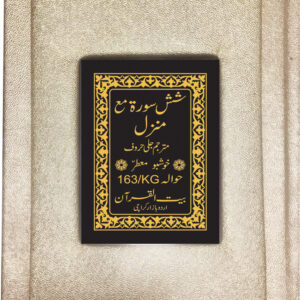 شش سورۃ مع
منزل
مترجم جلی حروف
خوشبو معطر
حوالہ 163/KG
بیت القرآن
اردو بازار کراچی